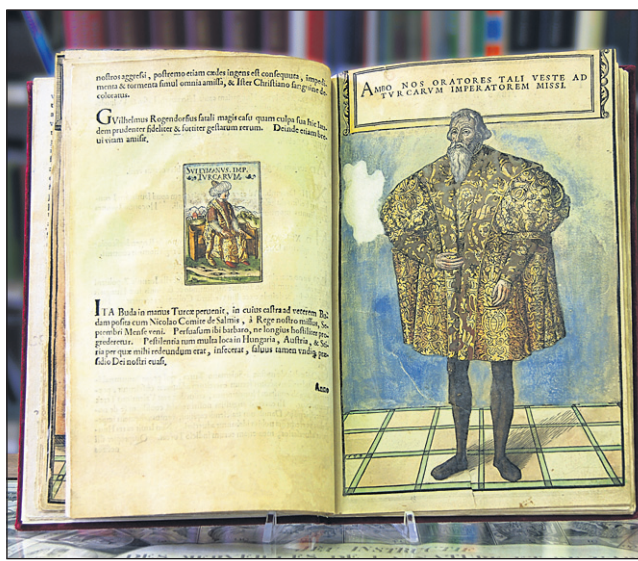 nostros aggressi, postremo etiam cædes ingens est consequuta, impedi-
menta & tormenta simul omnia amissa, & Ister Christiano sanguine de-
coloratus.
GVilhelmus Rogendorfius fatali magis casu quam culpa sua hic lau-
dem prudenter fideliter & fortiter gestarum rerum. Deinde etiam bre-
ui vitam amisit.
SVLEYMANVS. IMP.
TVRCARVM.
ITA Buda in manus Turcæ peruenit, in cuius castra ad veterem Bu-
dam posita cum Nicolao Comite de Salmis, à Rege nostro missus, Se-
ptembri Mense veni. Persuasum ibi barbaro, ne longius hostiliter pro-
grederetur. Pestilentia tum multa loca in Hungaria, Austria, & Sti-
ria per quæ mihi redeundum erat, infecerat, saluus tamen vndiq; præ-
sidio Dei nostri euasi.
Anno
AMBO NOS ORATORES TALI VESTE AD
TVRCARVM IMPERATOREM MISSI.
INSTRUCTIE